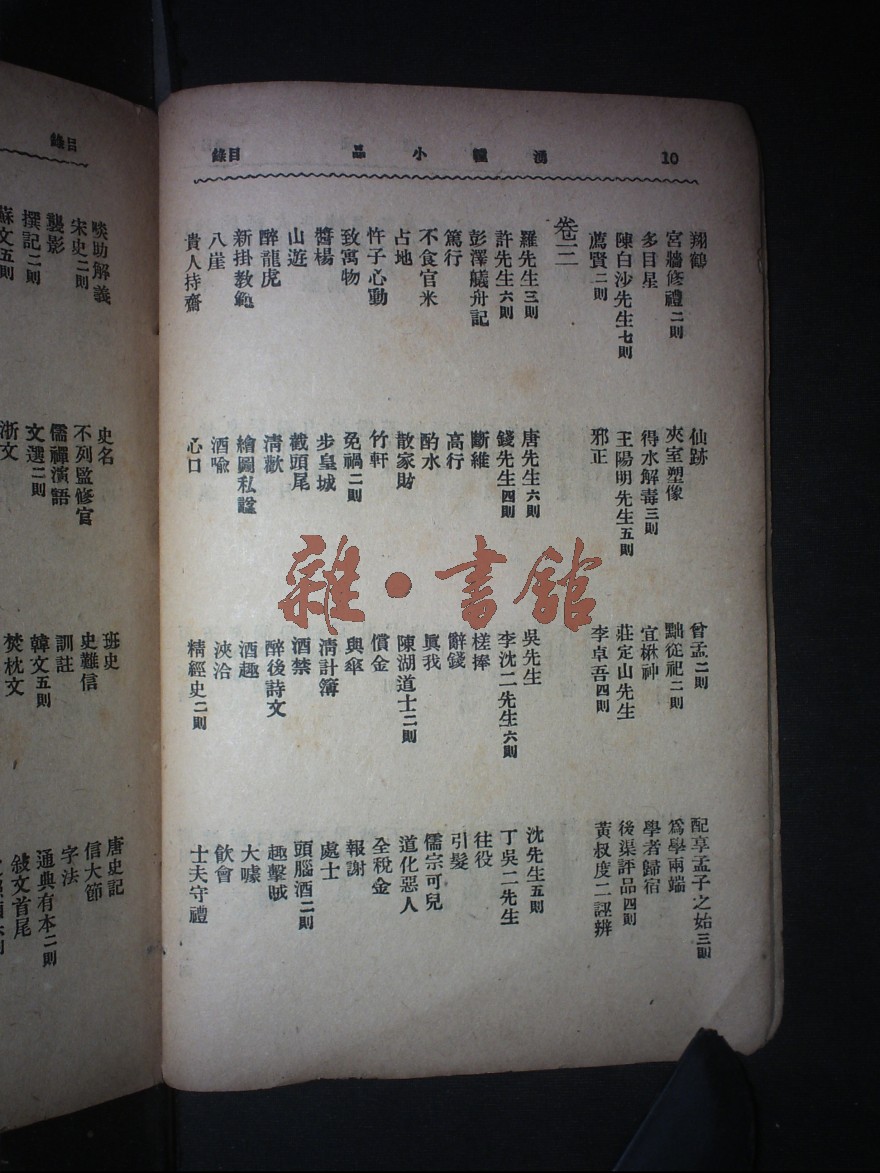 10 湧幢小品 目錄
翔鶴 仙跡 曾孟二則 配享孟子之始三則
宮牆修禮二則 夾室塑像 黜從祀二則 爲學兩端
多目星 得水解毒三則 宜楸神 學者歸宿
陳白沙先生七則 王陽明先生五則 莊定山先生 後渠評品四則
薦賢二則 邪正 李卓吾四則 黃叔度二誣辨
卷
羅先生三則 唐先生六則 吳先生 沈先生五則
許先生六則 錢先生四則 李沈二先生六則 丁吳二先生
彭澤艤舟記 斷維 槎捧 往役
篤行 高行 辭錢 引髮
不食官米 酌水 眞我 儒宗可兒
占地 散家財 陳湖道士二則 道化惡人
忤子心動 竹軒 償金 全稅金
致寓物 免禍二則 與傘 報謝
醬楊 步皇城 清計簿 處士
山遊 截頭尾 酒禁 頭腦酒二則
醉龍虎 清歡 醉後詩文 趣擊賊
新掛教龜 繪圖私諡 酒趣 大噱
八崖 酒喩 浹洽 飲會
貴人持齋 心口 精經史二則 士夫守禮
目錄
啖助解義 史名 班史 唐史記
宋史二則 不列監修官 史難信 信大節
襲影 儒禪演語 訓註 字法
撰記二則 文選二則 韓文五則 通典有本二則
蘇文五則 浙文 焚枕文 敍文首尾
雜·書館